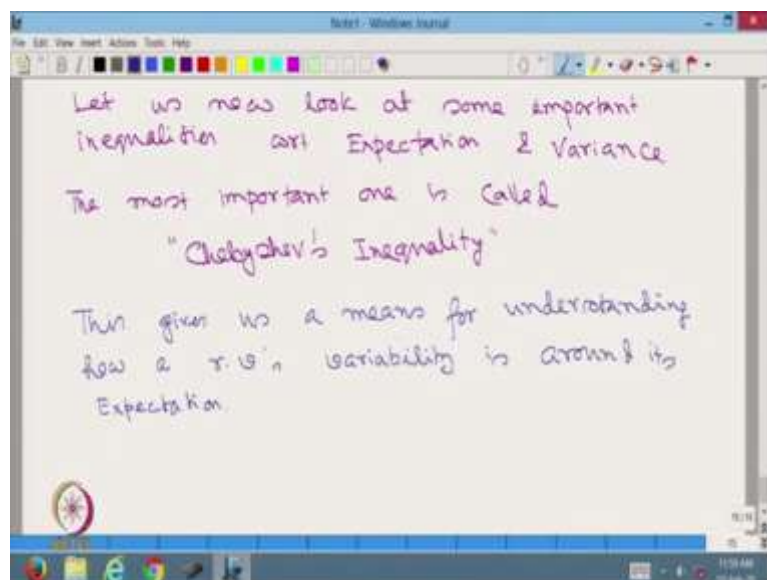 Note1 - Windows Journal
File Edit View Insert Actions Tools Help
Let us now look at some important
inequalities wrt Expectation & Variance
The most important one is called
"Chebyshev's Inequality"
This gives us a means for understanding
how a r.v's variability is around its
Expectation
11:59 AM